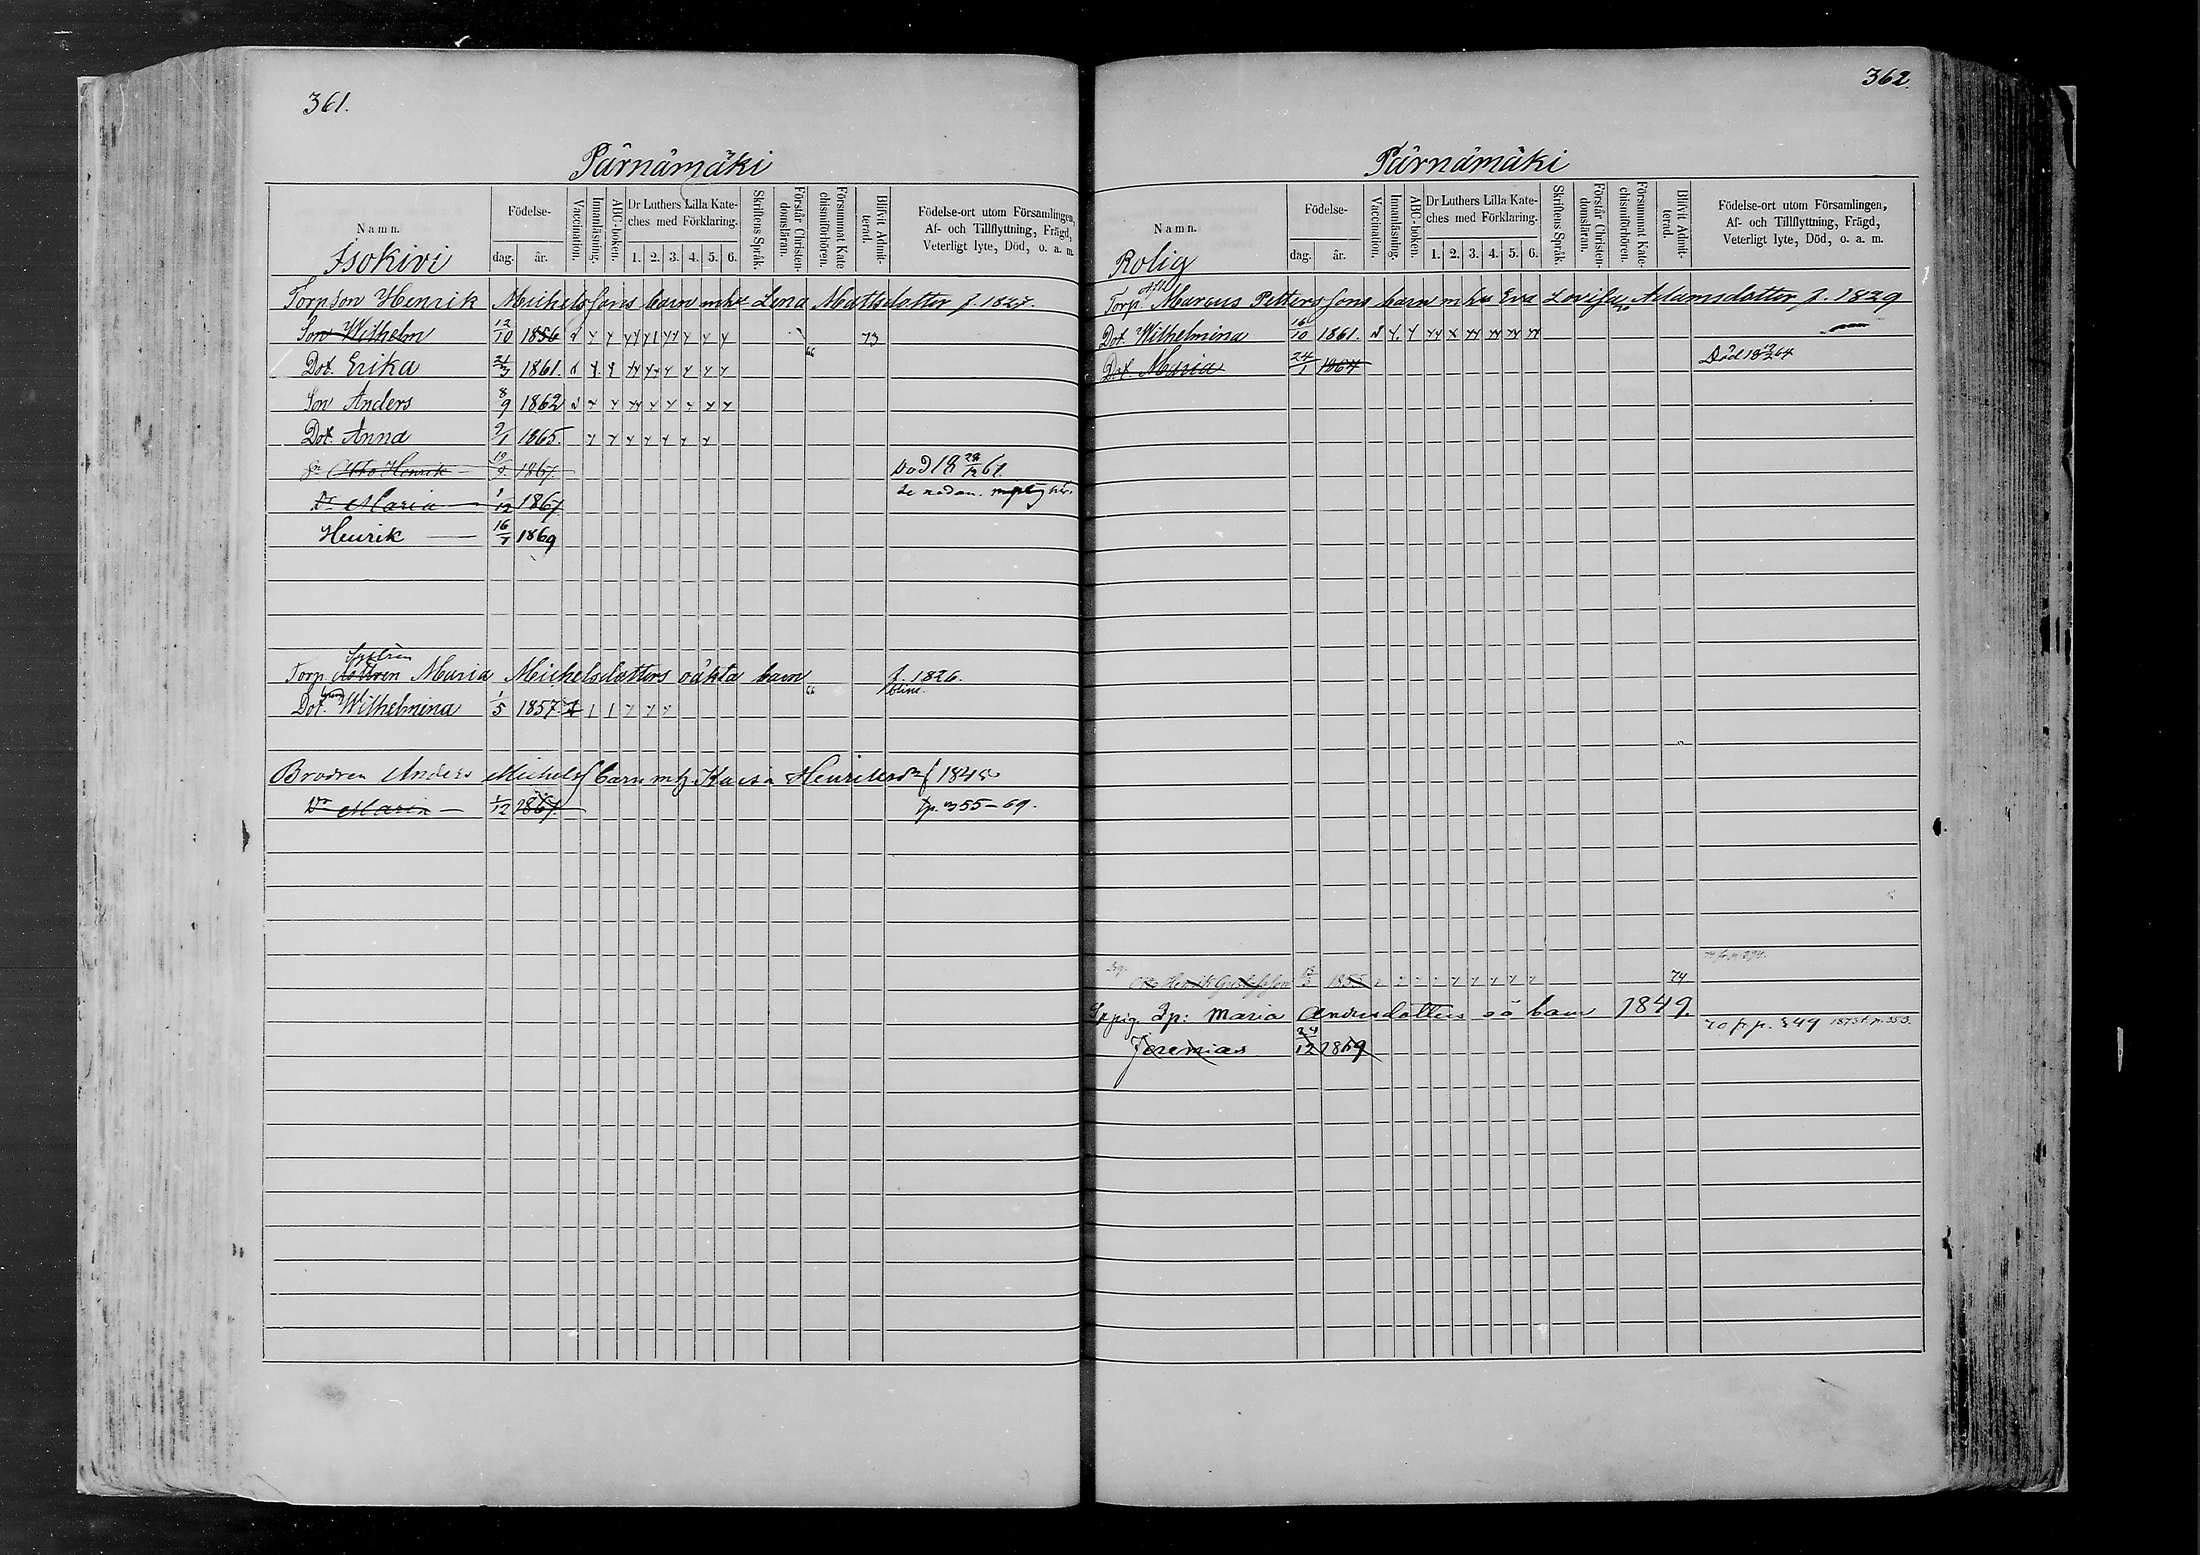 361.
Pärnämäki
Namn.
Födelse-
dag.
år.
Vaccination.
Innanläsning.
ABC-boken.
Dr Luthers Lilla Kate-
ches med Förklaring.
1. 2. 3. 4. 5. 6.
Skriftens Språk.
Förstår Christen-
domsläran.
Försummat Kate
chismiförhören.
Blifvit Admit-
terad.
Födelse-ort utom Församlingen,
Af- och Tillflyttning, Frägd,
Veterligt lyte, Död, o. a. m.
Isokivi
Torpson Henrik Michelssons barn mhu Lena Mattsdotter f. 1827.
Son Wilhelm 12/10 1856 73
Dot. Erika 21/3 1861.
Son Anders 8/9 1862
Dot. Anna 2/1 1865.
Otto Henrik 1867. Död
Dr Maria 1/12 1867
Henrik 16/7 1869
Systren
Torp. Maria Michelsdotters oäkta barn f. 1826.
Dot. Wilhelmina 1/5 1857
Brodren Anders Michels barn m Kaisa Henriksdr f 1845
Dr Maria 1/12 1867. p. 355-69.
362.
Pärnämäki
Namn.
Födelse-
dag.
år.
Vaccination.
Innanläsning.
ABC-boken.
Dr Luthers Lilla Kate-
ches med Förklaring.
1. 2. 3. 4. 5. 6.
Skriftens Språk.
Förstår Christen-
domsläran.
Försummat Kate-
chismiförhören.
Blifvit Admit-
terad.
Födelse-ort utom Församlingen,
Af- och Tillflyttning, Frägd,
Veterligt lyte, Död, o. a. m.
Rolig
Torp. Marcus Petterssons barn mhu Eva Lovisa Adamsdotter f. 1829
Dot. Wilhelmina 16/10 1861.
Dot. Maria 24/1 1864 Död
Henrik Gustafsson 1855 74
Maria Andersdotters oä barn 1849.
Jeremias 24/12 1869 70 fr p. 349 1873 t. p. 353.